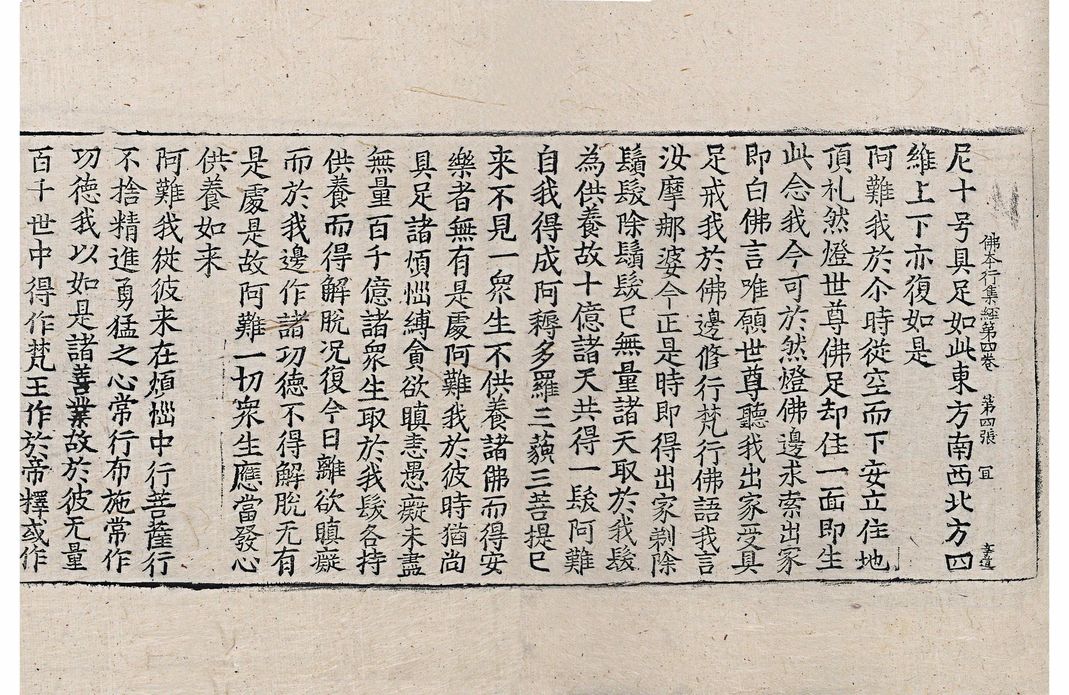 佛本行集經第四卷　第四張　冝
尼十号具足如此東方南西北方四
維上下亦復如是
阿難我於尒時從空而下安立住地
頂礼然燈世尊佛足却住一面即生
此念我今可於然燈佛邊求索出家
即白佛言唯願世尊聽我出家受具
足戒我於佛邊修行梵行佛語我言
汝摩那婆今正是時即得出家剃除
鬚髮除鬚髮已無量諸天取於我髮
為供養故十億諸天共得一髮阿難
自我得成阿耨多羅三藐三菩提已
来不見一衆生不供養諸佛而得安
樂者無有是處阿難我於彼時猶尚
具足諸煩惱縛貪欲瞋恚愚癡未盡
無量百千億諸衆生取於我髮各持
供養而得解脫況復今日離欲瞋癡
而於我邊作諸功德不得解脫无有
是處是故阿難一切衆生應當發心
供養如来
阿難我從彼来在煩惱中行菩薩行
不捨精進勇猛之心常行布施常作
功德我以如是諸善業故於彼无量
百千世中得作梵王作於帝釋或作